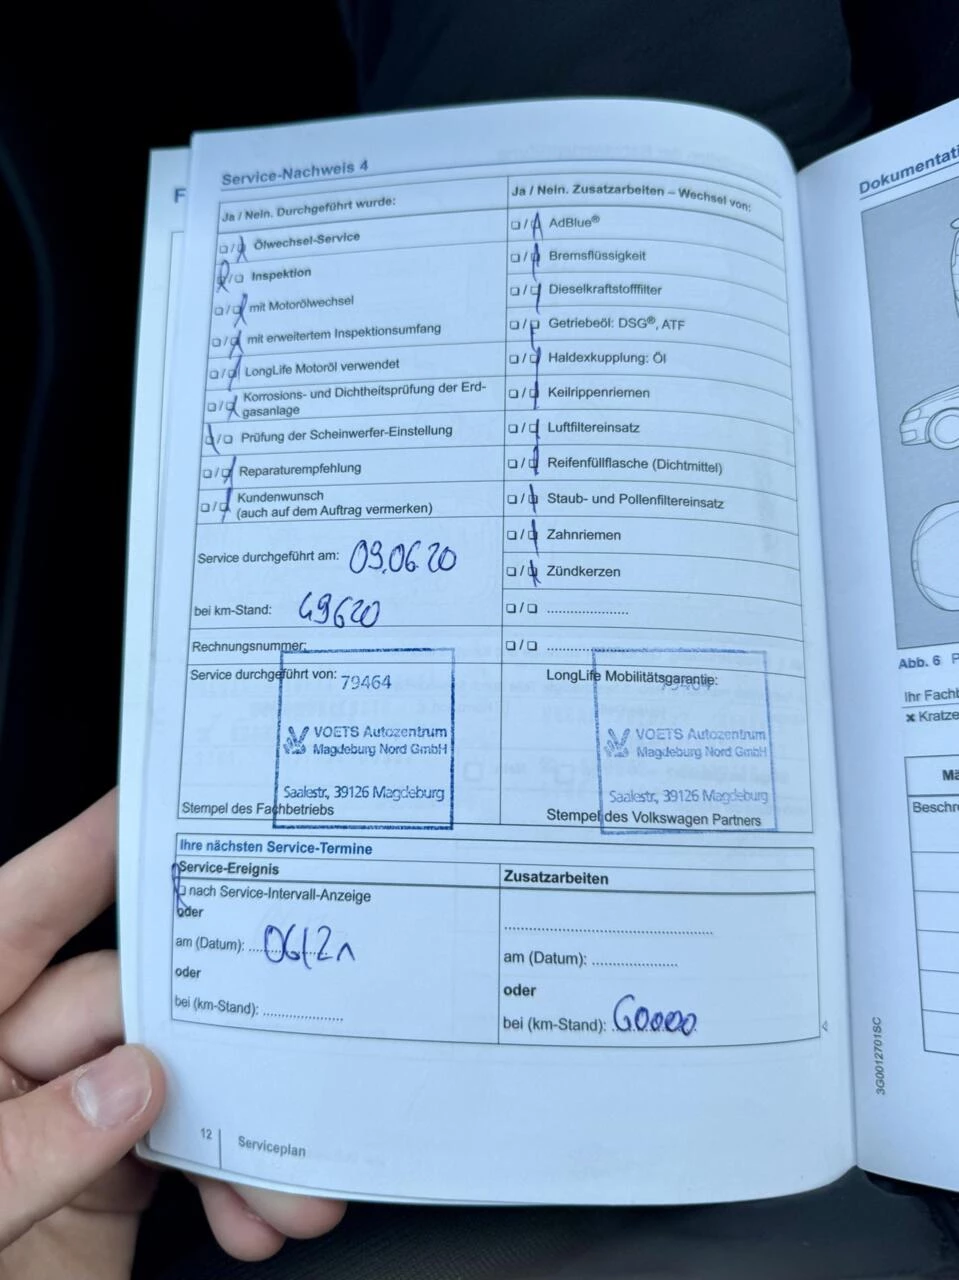 Service-Nachweis 4
Ja / Nein. Durchgeführt wurde:
❏ / ❏ Ölwechsel-Service
❏ / ❏ Inspektion
❏ / ❏ mit Motorölwechsel
❏ / ❏ mit erweitertem Inspektionsumfang
❏ / ❏ LongLife Motoröl verwendet
❏ / ❏ Korrosions- und Dichtheitsprüfung der Erd-
gasanlage
❏ / ❏ Prüfung der Scheinwerfer-Einstellung
❏ / ❏ Reparaturempfehlung
❏ / ❏ Kundenwunsch
(auch auf dem Auftrag vermerken)
Service durchgeführt am: 09.06.20
bei km-Stand: 49620
Rechnungsnummer:
Service durchgeführt von:
79464
VOETS Autozentrum
Magdeburg Nord GmbH
Saalestr, 39126 Magdeburg
Stempel des Fachbetriebs
Ja / Nein. Zusatzarbeiten – Wechsel von:
❏ / ❏ AdBlue®
❏ / ❏ Bremsflüssigkeit
❏ / ❏ Dieselkraftstofffilter
❏ / ❏ Getriebeöl: DSG®, ATF
❏ / ❏ Haldexkupplung: Öl
❏ / ❏ Keilrippenriemen
❏ / ❏ Luftfiltereinsatz
❏ / ❏ Reifenfüllflasche (Dichtmittel)
❏ / ❏ Staub- und Pollenfiltereinsatz
❏ / ❏ Zahnriemen
❏ / ❏ Zündkerzen
❏ / ❏ ....................
❏ / ❏ ....................
LongLife Mobilitätsgarantie:
79464
VOETS Autozentrum
Magdeburg Nord GmbH
Saalestr, 39126 Magdeburg
Stempel des Volkswagen Partners
Ihre nächsten Service-Termine
Service-Ereignis
❏ nach Service-Intervall-Anzeige
oder
am (Datum): 06/21
oder
bei (km-Stand): ....................
Zusatzarbeiten
..................................................
am (Datum): ....................
oder
bei (km-Stand): 60000
12
Serviceplan
3G0012701SC
Abb. 6
Ihr
✖ Kratze